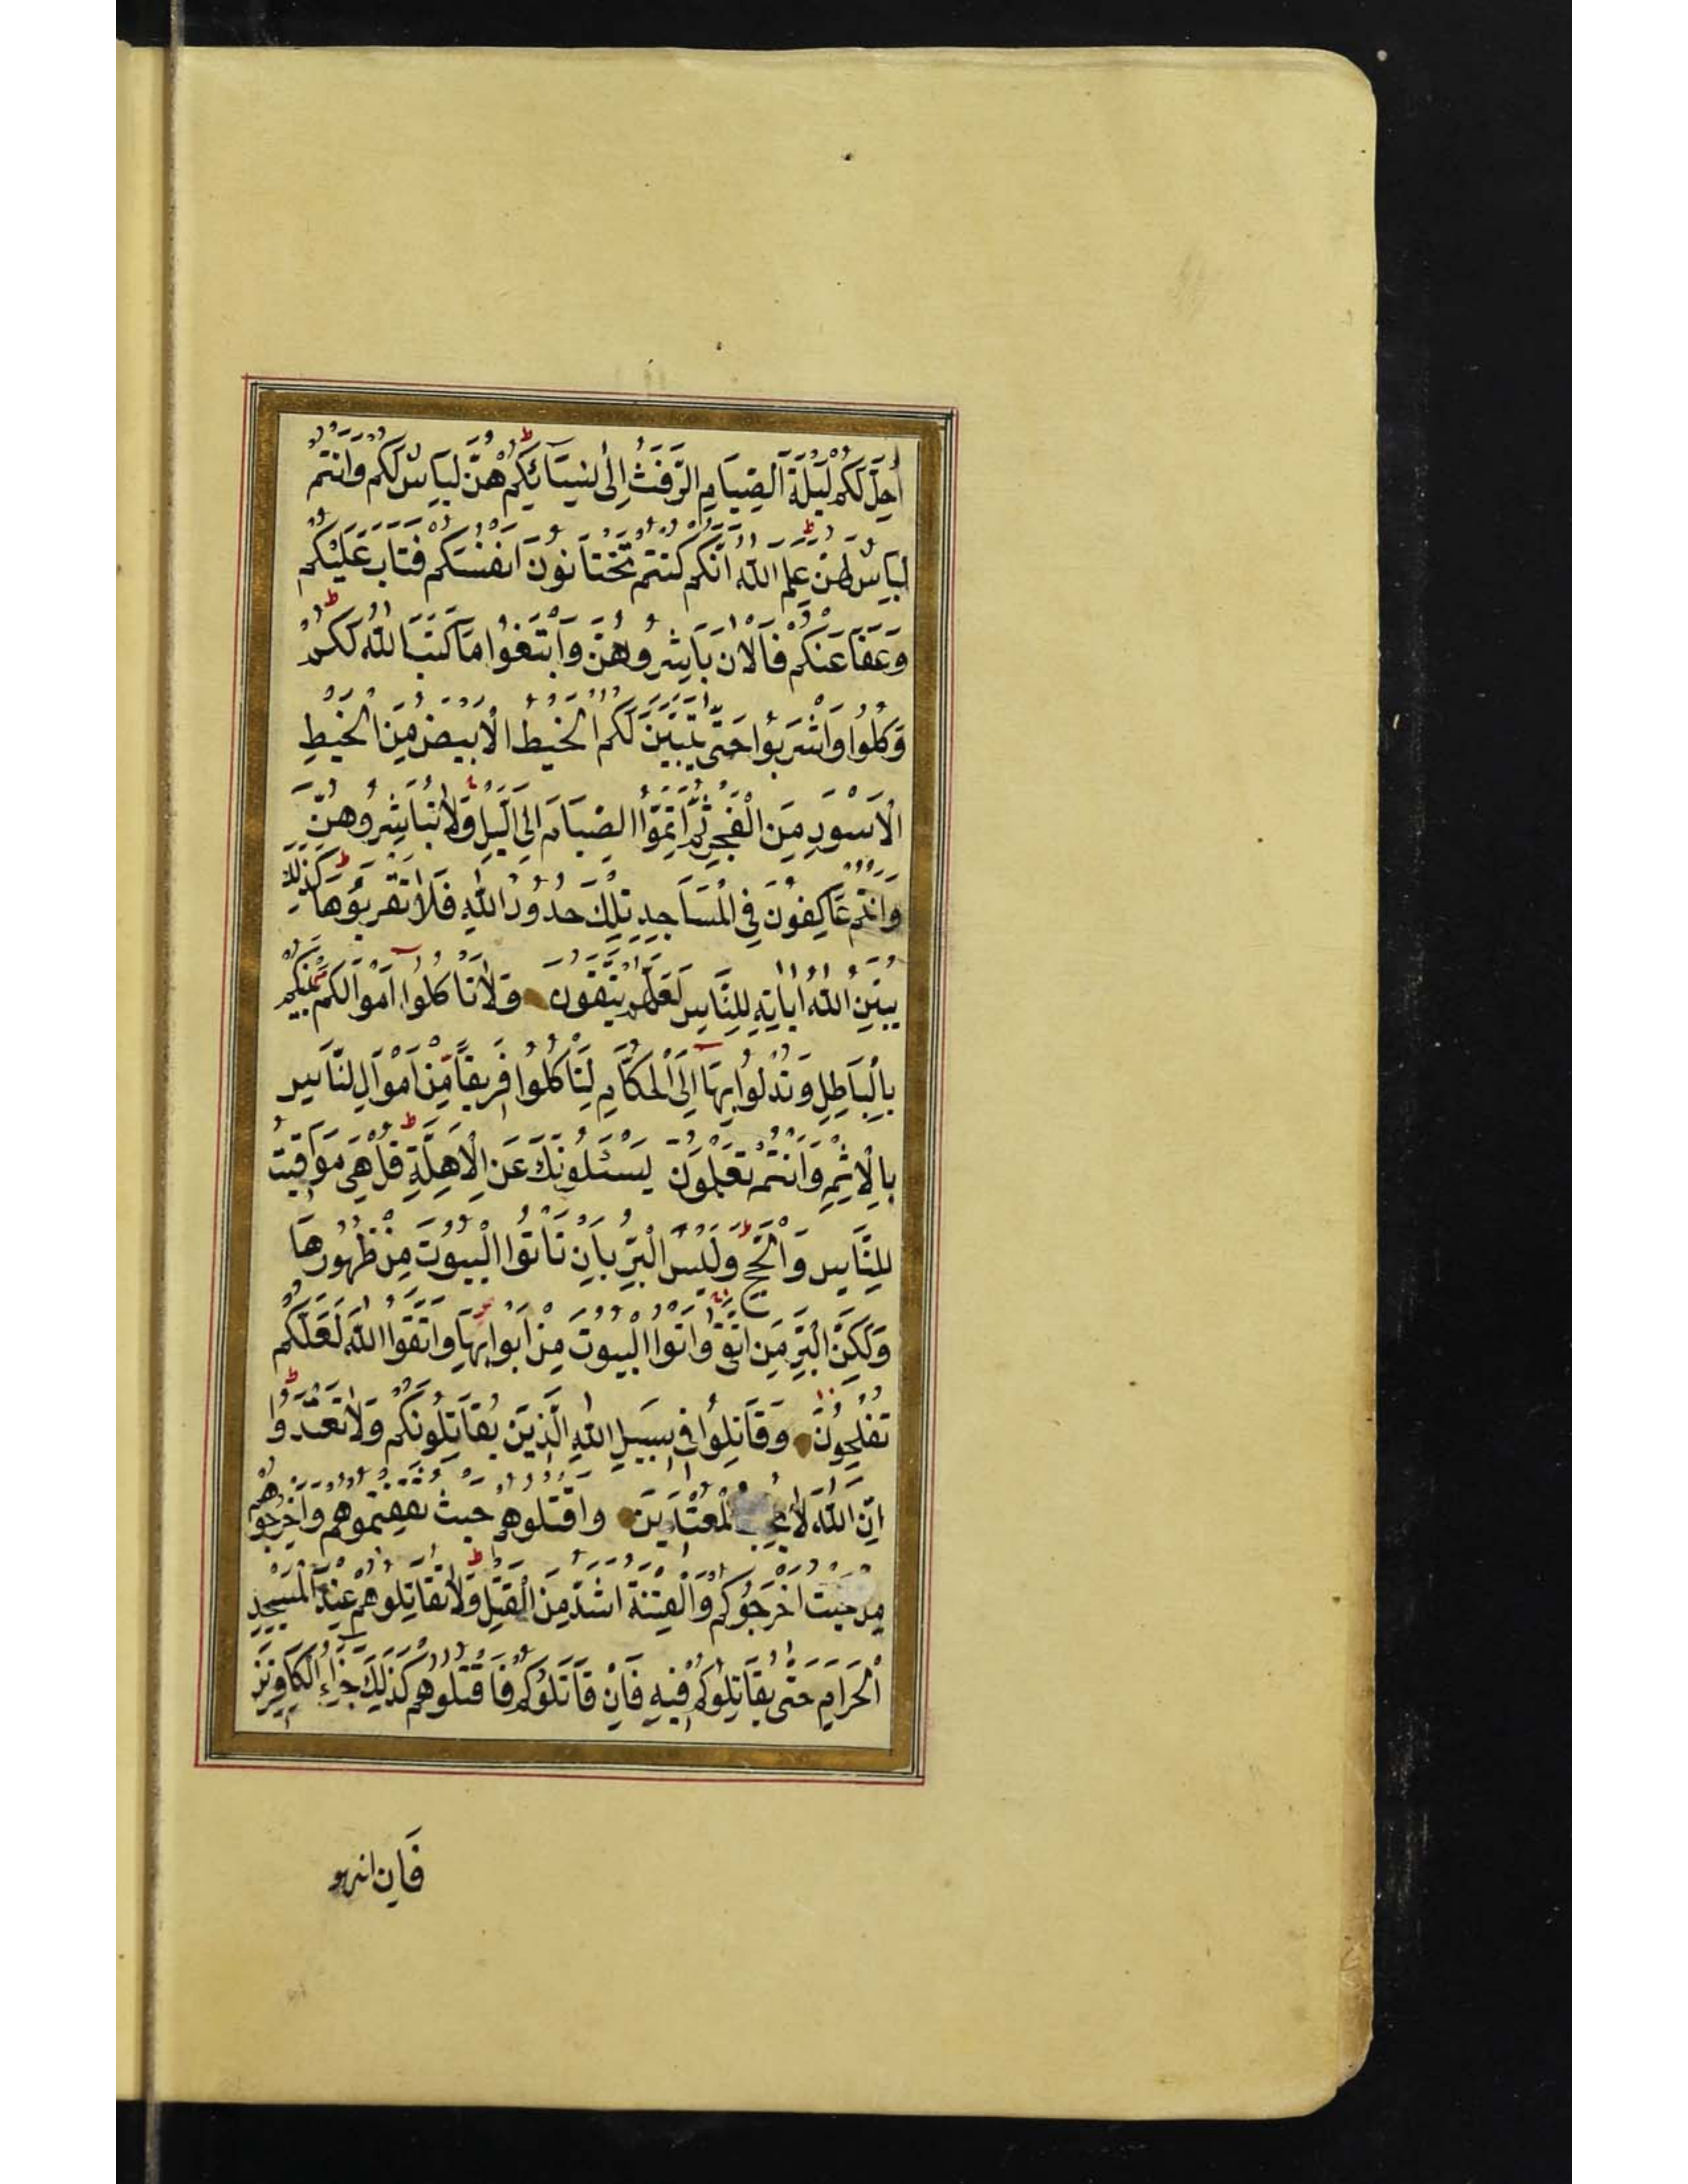 أُحِلَّ لَكُمْ لَيْلَةَ الصِّيَامِ الرَّفَثُ إِلَى نِسَآئِكُمْ هُنَّ لِبَاسٌ لَكُمْ وَأَنْتُمْ
لِبَاسٌ لَهُنَّ عَلِمَ اللّٰهُ أَنَّكُمْ كُنْتُمْ تَخْتَانُونَ أَنْفُسَكُمْ فَتَابَ عَلَيْكُمْ
وَعَفَا عَنْكُمْ فَالْاٰنَ بَاشِرُوهُنَّ وَابْتَغُوا مَا كَتَبَ اللّٰهُ لَكُمْ
وَكُلُوا وَاشْرَبُوا حَتّٰى يَتَبَيَّنَ لَكُمُ الْخَيْطُ الْأَبْيَضُ مِنَ الْخَيْطِ
الْأَسْوَدِ مِنَ الْفَجْرِ ثُمَّ أَتِمُّوا الصِّيَامَ إِلَى الَّيْلِ وَلَا تُبَاشِرُوهُنَّ
وَأَنْتُمْ عَاكِفُونَ فِي الْمَسَاجِدِ تِلْكَ حُدُودُ اللّٰهِ فَلَا تَقْرَبُوهَا كَذٰلِكَ
يُبَيِّنُ اللّٰهُ اٰيَاتِهِ لِلنَّاسِ لَعَلَّهُمْ يَتَّقُونَ وَلَا تَأْكُلُوا أَمْوَالَكُمْ بَيْنَكُمْ
بِالْبَاطِلِ وَتُدْلُوا بِهَا إِلَى الْحُكَّامِ لِتَأْكُلُوا فَرِيقًا مِنْ أَمْوَالِ النَّاسِ
بِالْإِثْمِ وَأَنْتُمْ تَعْلَمُونَ يَسْئَلُونَكَ عَنِ الْأَهِلَّةِ قُلْ هِيَ مَوَاقِيتُ
لِلنَّاسِ وَالْحَجِّ وَلَيْسَ الْبِرُّ بِأَنْ تَأْتُوا الْبُيُوتَ مِنْ ظُهُورِهَا
وَلٰكِنَّ الْبِرَّ مَنِ اتَّقٰى وَأْتُوا الْبُيُوتَ مِنْ أَبْوَابِهَا وَاتَّقُوا اللّٰهَ لَعَلَّكُمْ
تُفْلِحُونَ وَقَاتِلُوا فِي سَبِيلِ اللّٰهِ الَّذِينَ يُقَاتِلُونَكُمْ وَلَا تَعْتَدُوا
إِنَّ اللّٰهَ لَا يُحِبُّ الْمُعْتَدِينَ وَاقْتُلُوهُمْ حَيْثُ ثَقِفْتُمُوهُمْ وَأَخْرِجُوهُمْ
مِنْ حَيْثُ أَخْرَجُوكُمْ وَالْفِتْنَةُ أَشَدُّ مِنَ الْقَتْلِ وَلَا تُقَاتِلُوهُمْ عِنْدَ الْمَسْجِدِ
الْحَرَامِ حَتّٰى يُقَاتِلُوكُمْ فِيهِ فَإِنْ قَاتَلُوكُمْ فَاقْتُلُوهُمْ كَذٰلِكَ جَزَاءُ الْكَافِرِينَ
فَإِن انتهو